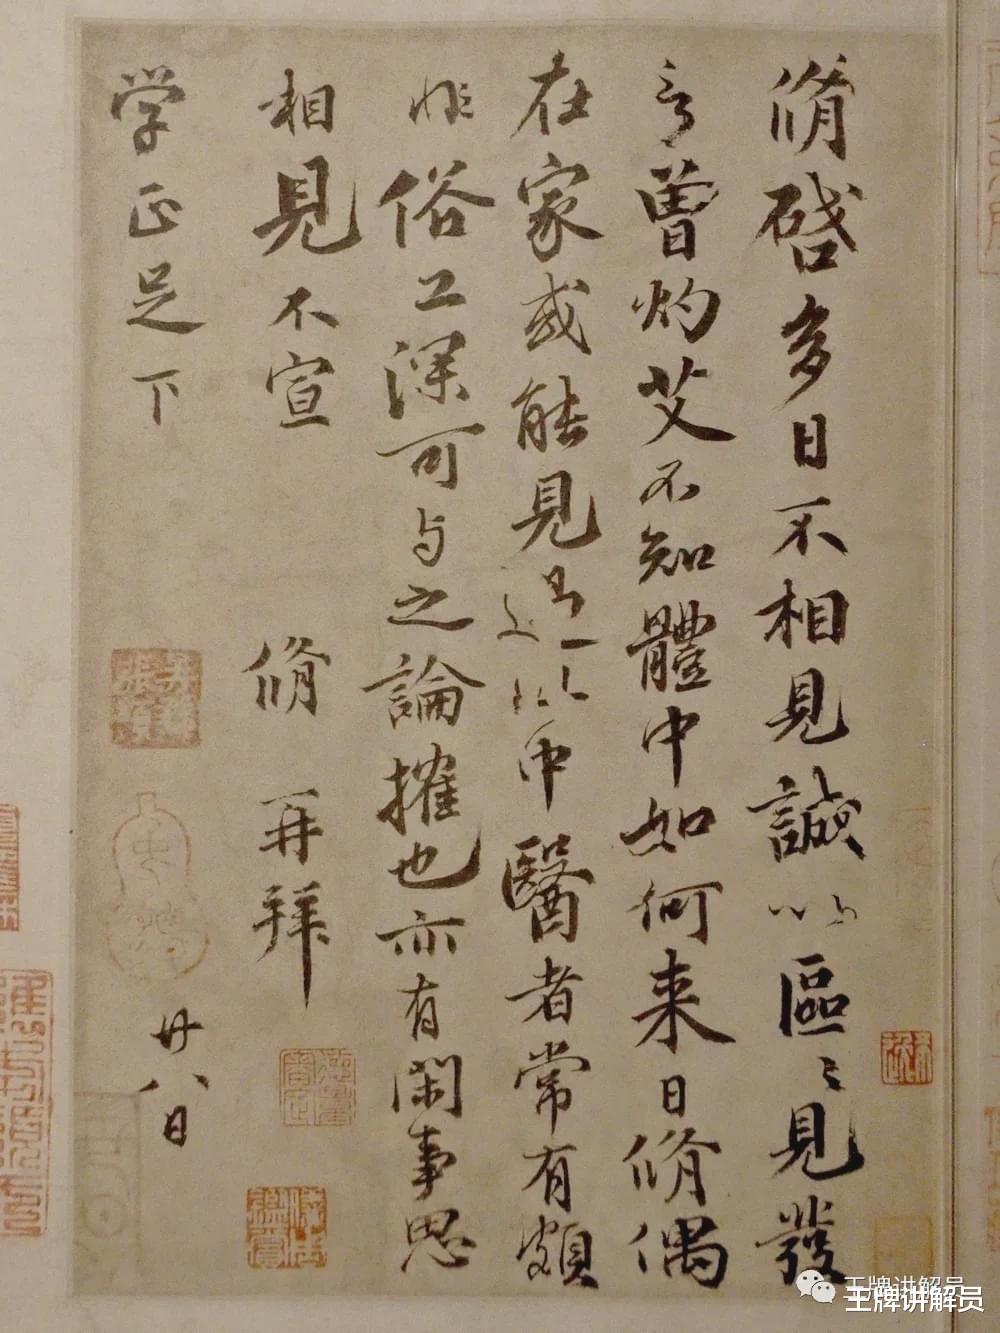 脩啓多日不相見誠以區〻見發
言曾灼艾不知體中如何来日脩偶
在家或能見過以中醫者常有頗
非俗工深可与之論搉也亦有閑事思
相見不宣
脩再拜
学正足下
廿八日
王牌讲解员
王牌讲解员